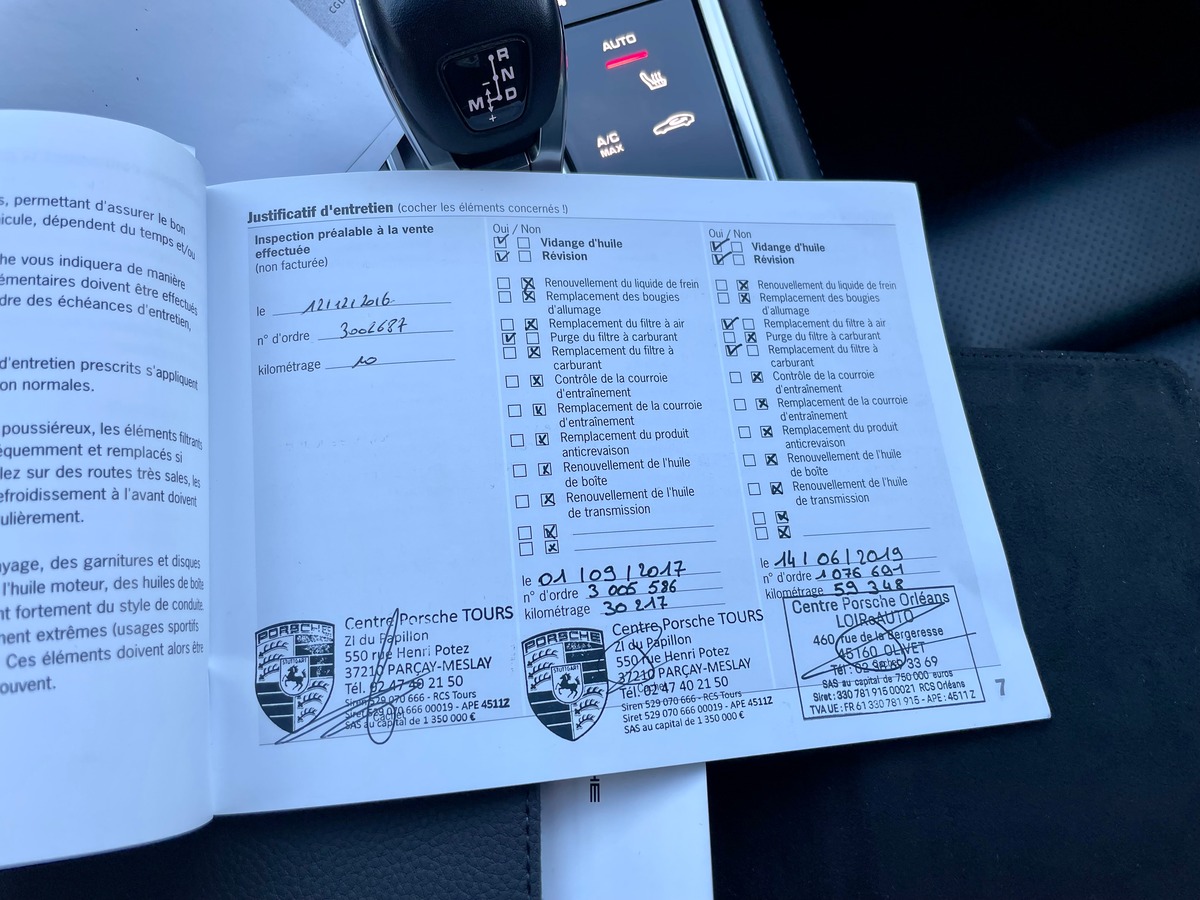 CGU
R
N
D
M
-
+
AUTO
A/C
MAX
s, permettant d'assurer le bon
icule, dépendent du temps et/ou
he vous indiquera de manière
émentaires doivent être effectués
dre des échéances d'entretien,
d'entretien prescrits s'appliquent
on normales.
poussiéreux, les éléments filtrants
équemment et remplacés si
lez sur des routes très sales, les
efroidissement à l'avant doivent
ulièrement.
yage, des garnitures et disques
l'huile moteur, des huiles de boîte
nt fortement du style de conduite.
ment extrêmes (usages sportifs
Ces éléments doivent alors être
ouvent.
Justificatif d'entretien (cocher les éléments concernés !)
Inspection préalable à la vente
effectuée
(non facturée)
le 12/12/2016
n° d'ordre 3002687
kilométrage 10
PORSCHE
STUTTGART
Centre Porsche TOURS
ZI du Papillon
550 rue Henri Potez
37210 PARÇAY-MESLAY
Tél. 02 47 40 21 50
Siren 529 070 666 - RCS Tours
Siret 529 070 666 00019 - APE 4511Z
SAS au capital de 1 350 000 €
Cachet
Oui / Non
Vidange d'huile
Révision
Renouvellement du liquide de frein
Remplacement des bougies
d'allumage
Remplacement du filtre à air
Purge du filtre à carburant
Remplacement du filtre à
carburant
Contrôle de la courroie
d'entraînement
Remplacement de la courroie
d'entraînement
Remplacement du produit
anticrevaison
Renouvellement de l'huile
de boîte
Renouvellement de l'huile
de transmission
le 01/09/2017
n° d'ordre 3 005 586
kilométrage 30 217
PORSCHE
STUTTGART
Centre Porsche TOURS
ZI du Papillon
550 rue Henri Potez
37210 PARÇAY-MESLAY
Tél. 02 47 40 21 50
Siren 529 070 666 - RCS Tours
Siret 529 070 666 00019 - APE 4511Z
SAS au capital de 1 350 000 €
Oui / Non
Vidange d'huile
Révision
Renouvellement du liquide de frein
Remplacement des bougies
d'allumage
Remplacement du filtre à air
Purge du filtre à carburant
Remplacement du filtre à
carburant
Contrôle de la courroie
d'entraînement
Remplacement de la courroie
d'entraînement
Remplacement du produit
anticrevaison
Renouvellement de l'huile
de boîte
Renouvellement de l'huile
de transmission
le 14/06/2019
n° d'ordre 1 076 691
kilométrage 59 348
Centre Porsche Orléans
LOIRE AUTO
460, rue de la Bergeresse
45160 OLIVET
SAS au capital de 750 000 euros
Siret : 330 781 915 00021 RCS Orléans
TVA UE : FR 61 330 781 915 - APE : 4511Z
7